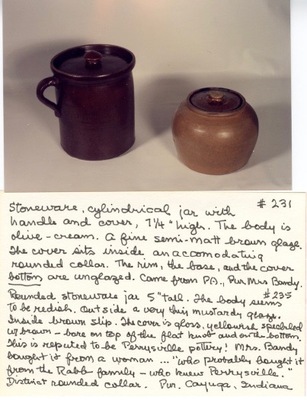 Stoneware, cylindrical jar with # 231
handle and cover, 7¼" high. The body is
olive-cream. A fine semi-matt brown glaze.
The cover sits inside an accomodating
rounded collar. The rim, the base, and the cover
bottom are unglazed. Came from PA., Pur. Mrs Bandy.
Rounded stoneware jar 5" tall. The body seems # 235
to be redish. Outside a very thin mustardy glaze.
Inside brown slip. The cover is gloss, yellowish speckled
w/ brown - bare on top of the flat knob and on the bottom.
This is reputed to be Perrysville pottery! Mrs. Bandy
bought it from a woman ... "who probably bought it
from the Rabb family - who knew Perrysville."
District rounded collar. Pur. Cayuga, Indiana